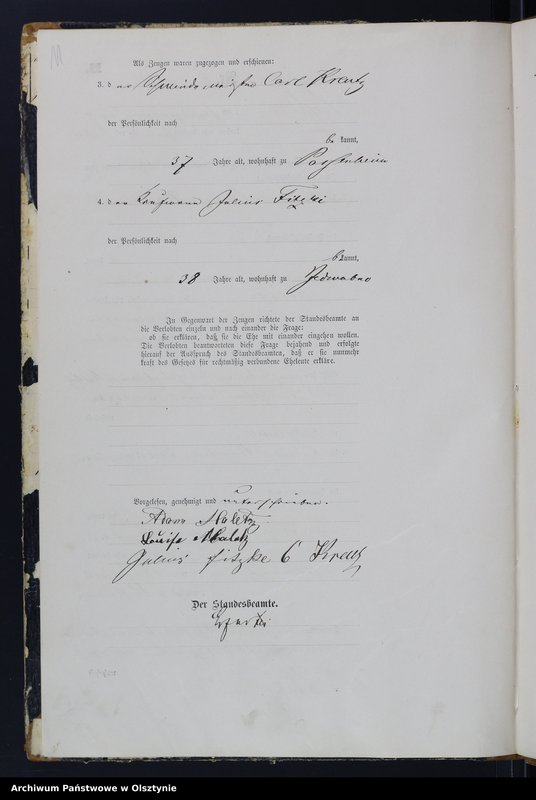 Als Zeugen waren zugezogen und erschienen:
3. d er Carl Kreutz
der Persönlichkeit nach
be kannt,
37 Jahre alt, wohnhaft zu Passenheim
4. d en Kaufmann Julius Fitzki
der Persönlichkeit nach
be kannt,
38 Jahre alt, wohnhaft zu Jedwabno
In Gegenwart der Zeugen richtete der Standesbeamte an
die Verlobten einzeln und nach einander die Frage:
ob sie erklären, daß sie die Ehe mit einander eingehen wollen.
Die Verlobten beantworteten diese Frage bejahend und erfolgte
hierauf der Ausspruch des Standesbeamten, daß er sie nunmehr
kraft des Gesetzes für rechtmäßig verbundene Eheleute erkläre.
Vorgelesen, genehmigt und unterschrieben.
Adam Maletz
Louise Maletz
Julius Fitzke C Kreutz
Der Standesbeamte.
Archiwum Państwowe w Olsztynie